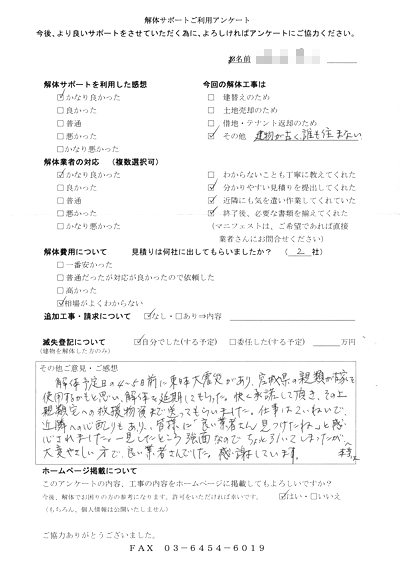 解体サポートご利用アンケート
今後、より良いサポートをさせていただく為に、よろしければアンケートにご協力ください。
お名前
解体サポートを利用した感想
☑かなり良かった
□良かった
□普通
□悪かった
□かなり悪かった
今回の解体工事は
□ 建替えのため
□ 土地売却のため
□ 借地・テナント返却のため
☑ その他 建物が古く、誰も住まない
解体業者の対応 (複数選択可)
☑かなり良かった
□良かった
□普通
□悪かった
□かなり悪かった
□ わからないことも丁寧に教えてくれた
☑ 分かりやすい見積りを提出してくれた
☑ 近隣にも気を遣い作業してくれていた
☑ 終了後、必要な書類を揃えてくれた
(マニフェストは、ご希望であれば直接
業者さんにお問合せください)
解体費用について 見積りは何社に出してもらいましたか? ( 2 社)
□一番安かった
□普通だったが対応が良かったので依頼した
□高かった
☑相場がよくわからない
追加工事・請求について ☑なし・□あり⇒内容
滅失登記について ☑自分でした(する予定) □委任した(する予定) 万円
(建物を解体した方のみ)
その他ご意見・ご感想
解体予定日の4~5日前に東日本大震災があり、宮城県の親類が家を
使用するかもと思い、解体を延期してもらった。快く承諾して頂き、その上
親類宅への救援物資まで送ってもらいました。仕事はていねいで、
近隣への心配りもあり、皆様に「良い業者さん見つけたね」と感
心されました。一見したところ強面なので ちょっと引いてしまったが、
大変やさしい方で、良い業者さんでした。感謝しています。
ホームページ掲載について
このアンケートの内容、工事の内容をホームページに掲載してもよろしいですか?
今後、解体でお困りの方の参考になります。許可をいただければ幸いです。 ☑はい・□いいえ
(もちろん、個人情報は公開いたしません)
ご協力ありがとうございました。
FAX 03-6454-6019